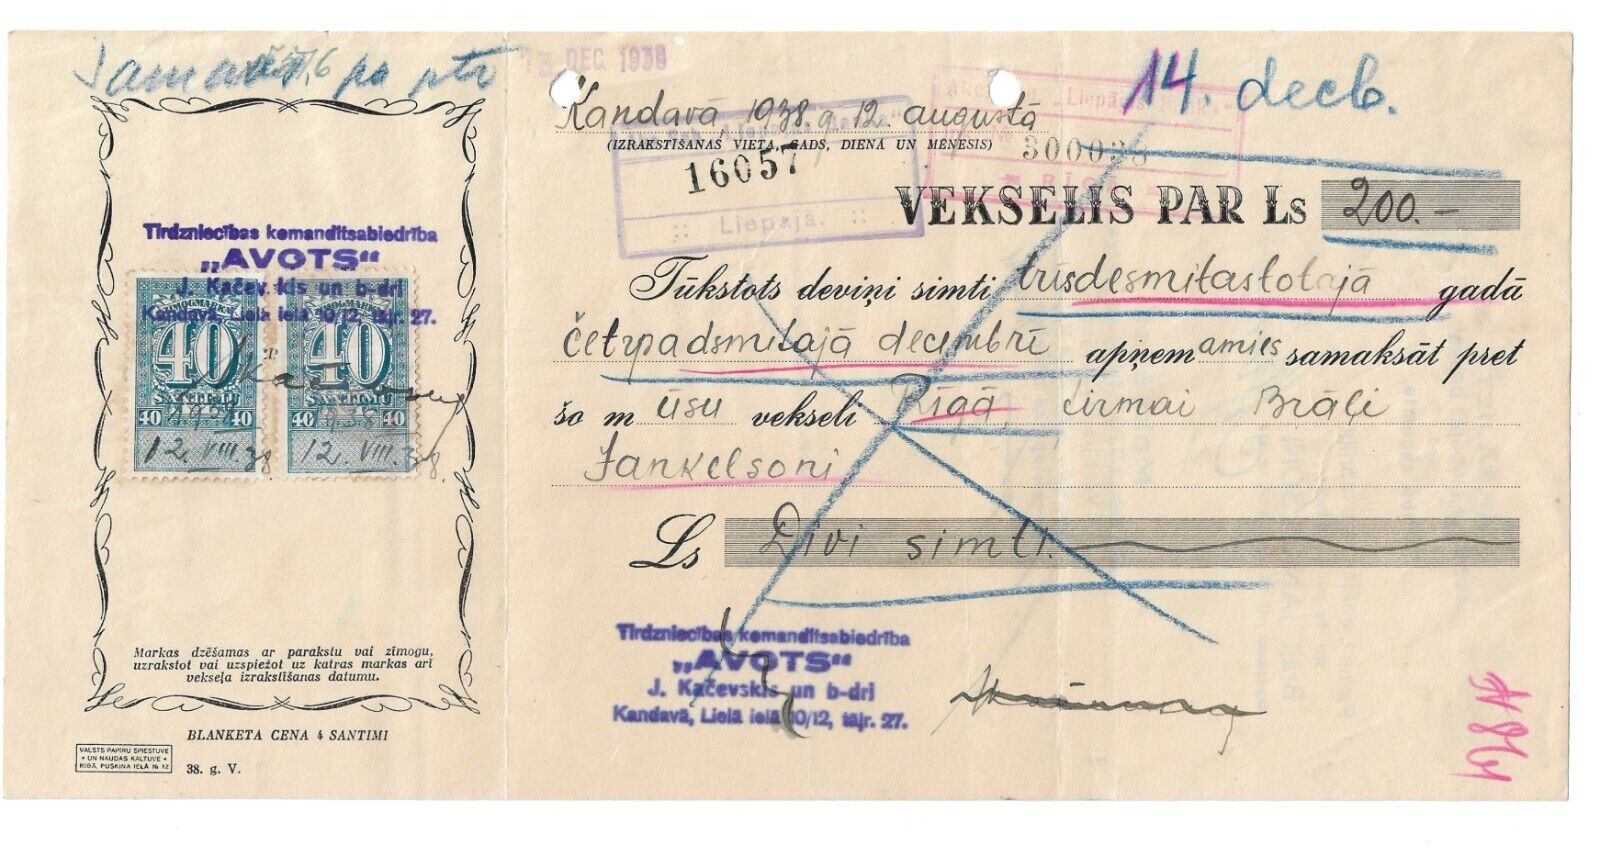 13 DEC. 1938
14. decb.
Kandavā, 1938 g. 12. augustā
(IZRAKSTĪŠANAS VIETA, GADS, DIENA UN MĒNESIS)
16057
Liepājā.
300038
RĪGĀ
VEKSELIS PAR Ls 200.-
Tūkstots deviņi simti trīsdesmitastotajā gadā
četrpadsmitajā decembrī apņemamies samaksāt pret
šo mūsu vekseli Rīgā, firmai Brāļi
Jankelsoni
Ls Divi simti.
Tirdzniecības komandītsabiedrība
„AVOTS“
J. Kačevskis un b-dri
Kandavā, Lielā ielā 10/12, tāļr. 27.
Tirdzniecības komandītsabiedrība
„AVOTS“
J. Kačevskis un b-dri
Kandavā, Lielā ielā 10/12, tāļr. 27.
40 40
SANTĪMU SANTĪMU
40 40 40 40
1938 1938
12. VIII. 38 12. VIII. 38.
Markas dzēšamas ar parakstu vai zīmogu,
uzrakstot vai uzspiežot uz katras markas arī
vekseļa izrakstīšanas datumu.
BLANKETA CENA 4 SANTIMI
VALSTS PAPIRU SPIESTUVE
UN NAUDAS KALTUVE
RĪGĀ, PUŠKINA IELĀ № 12
38. g. V.